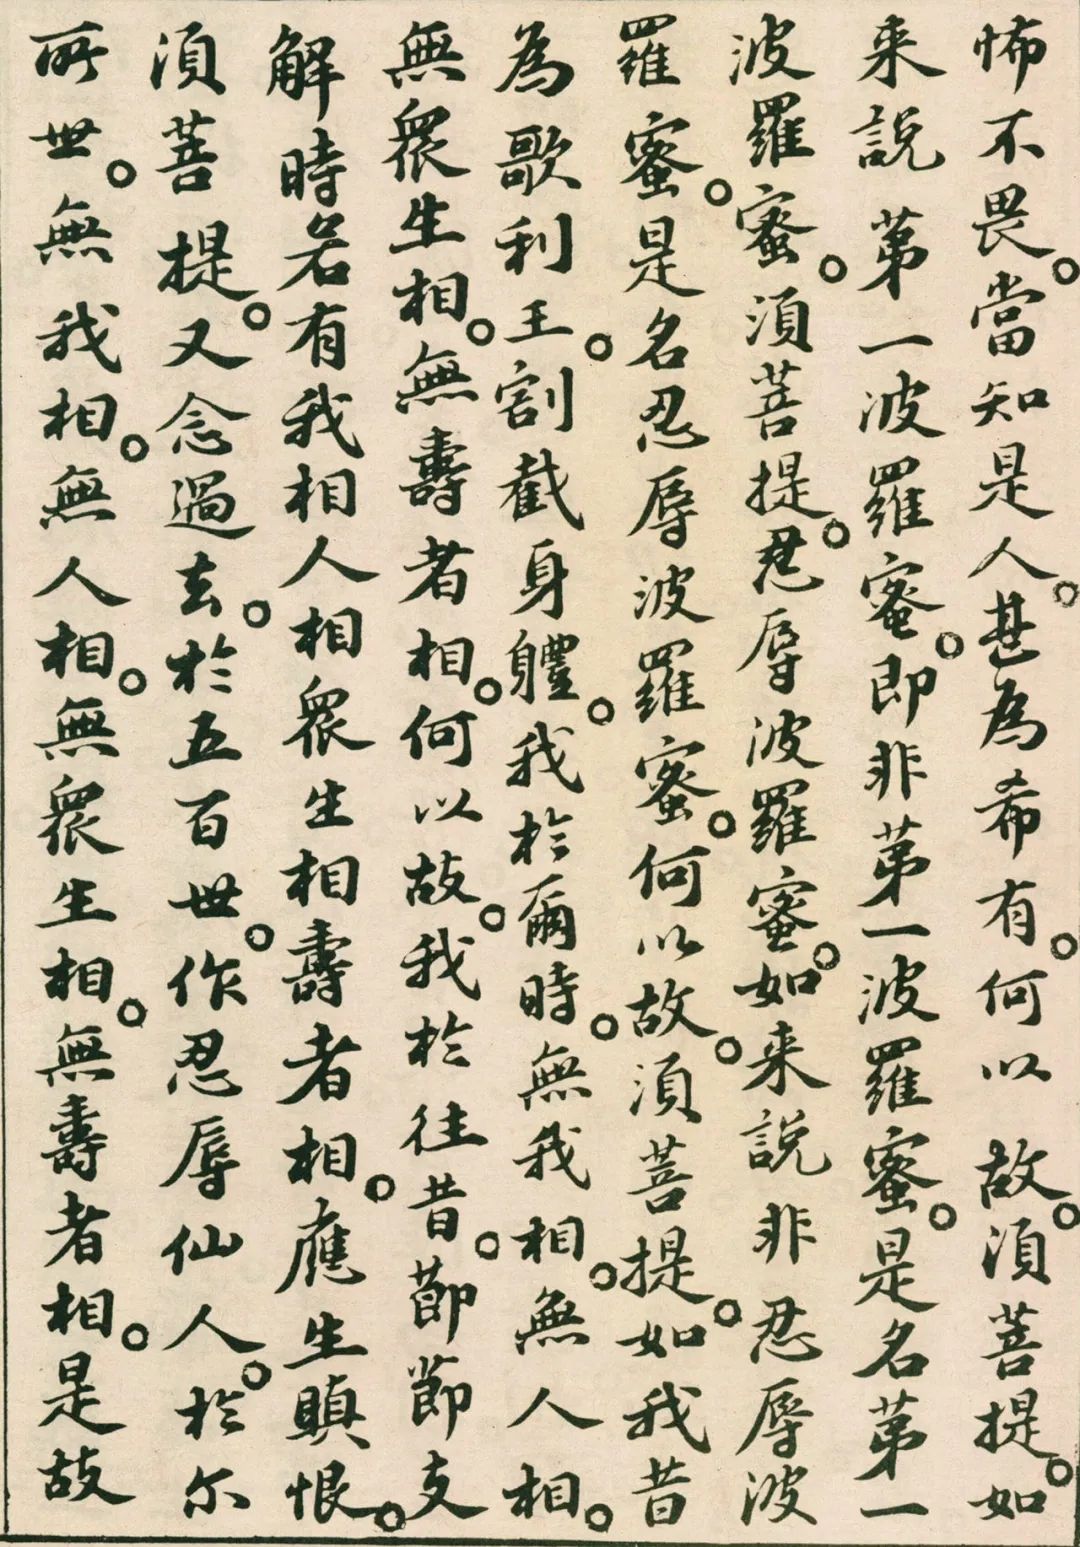 怖不畏。當知是人。甚為希有。何以故。須菩提。如
来說第一波羅蜜。即非第一波羅蜜。是名第一
波羅蜜。須菩提。忍辱波羅蜜。如来說非忍辱波
羅蜜。是名忍辱波羅蜜。何以故。須菩提。如我昔
為歌利王。割截身軆。我於爾時。無我相。無人相。
無眾生相。無壽者相。何以故。我於往昔。節節支
解時若有我相人相眾生相壽者相。應生瞋恨。
須菩提。又念過去。於五百世。作忍辱仙人。於尔
所世。無我相。無人相。無眾生相。無壽者相。是故